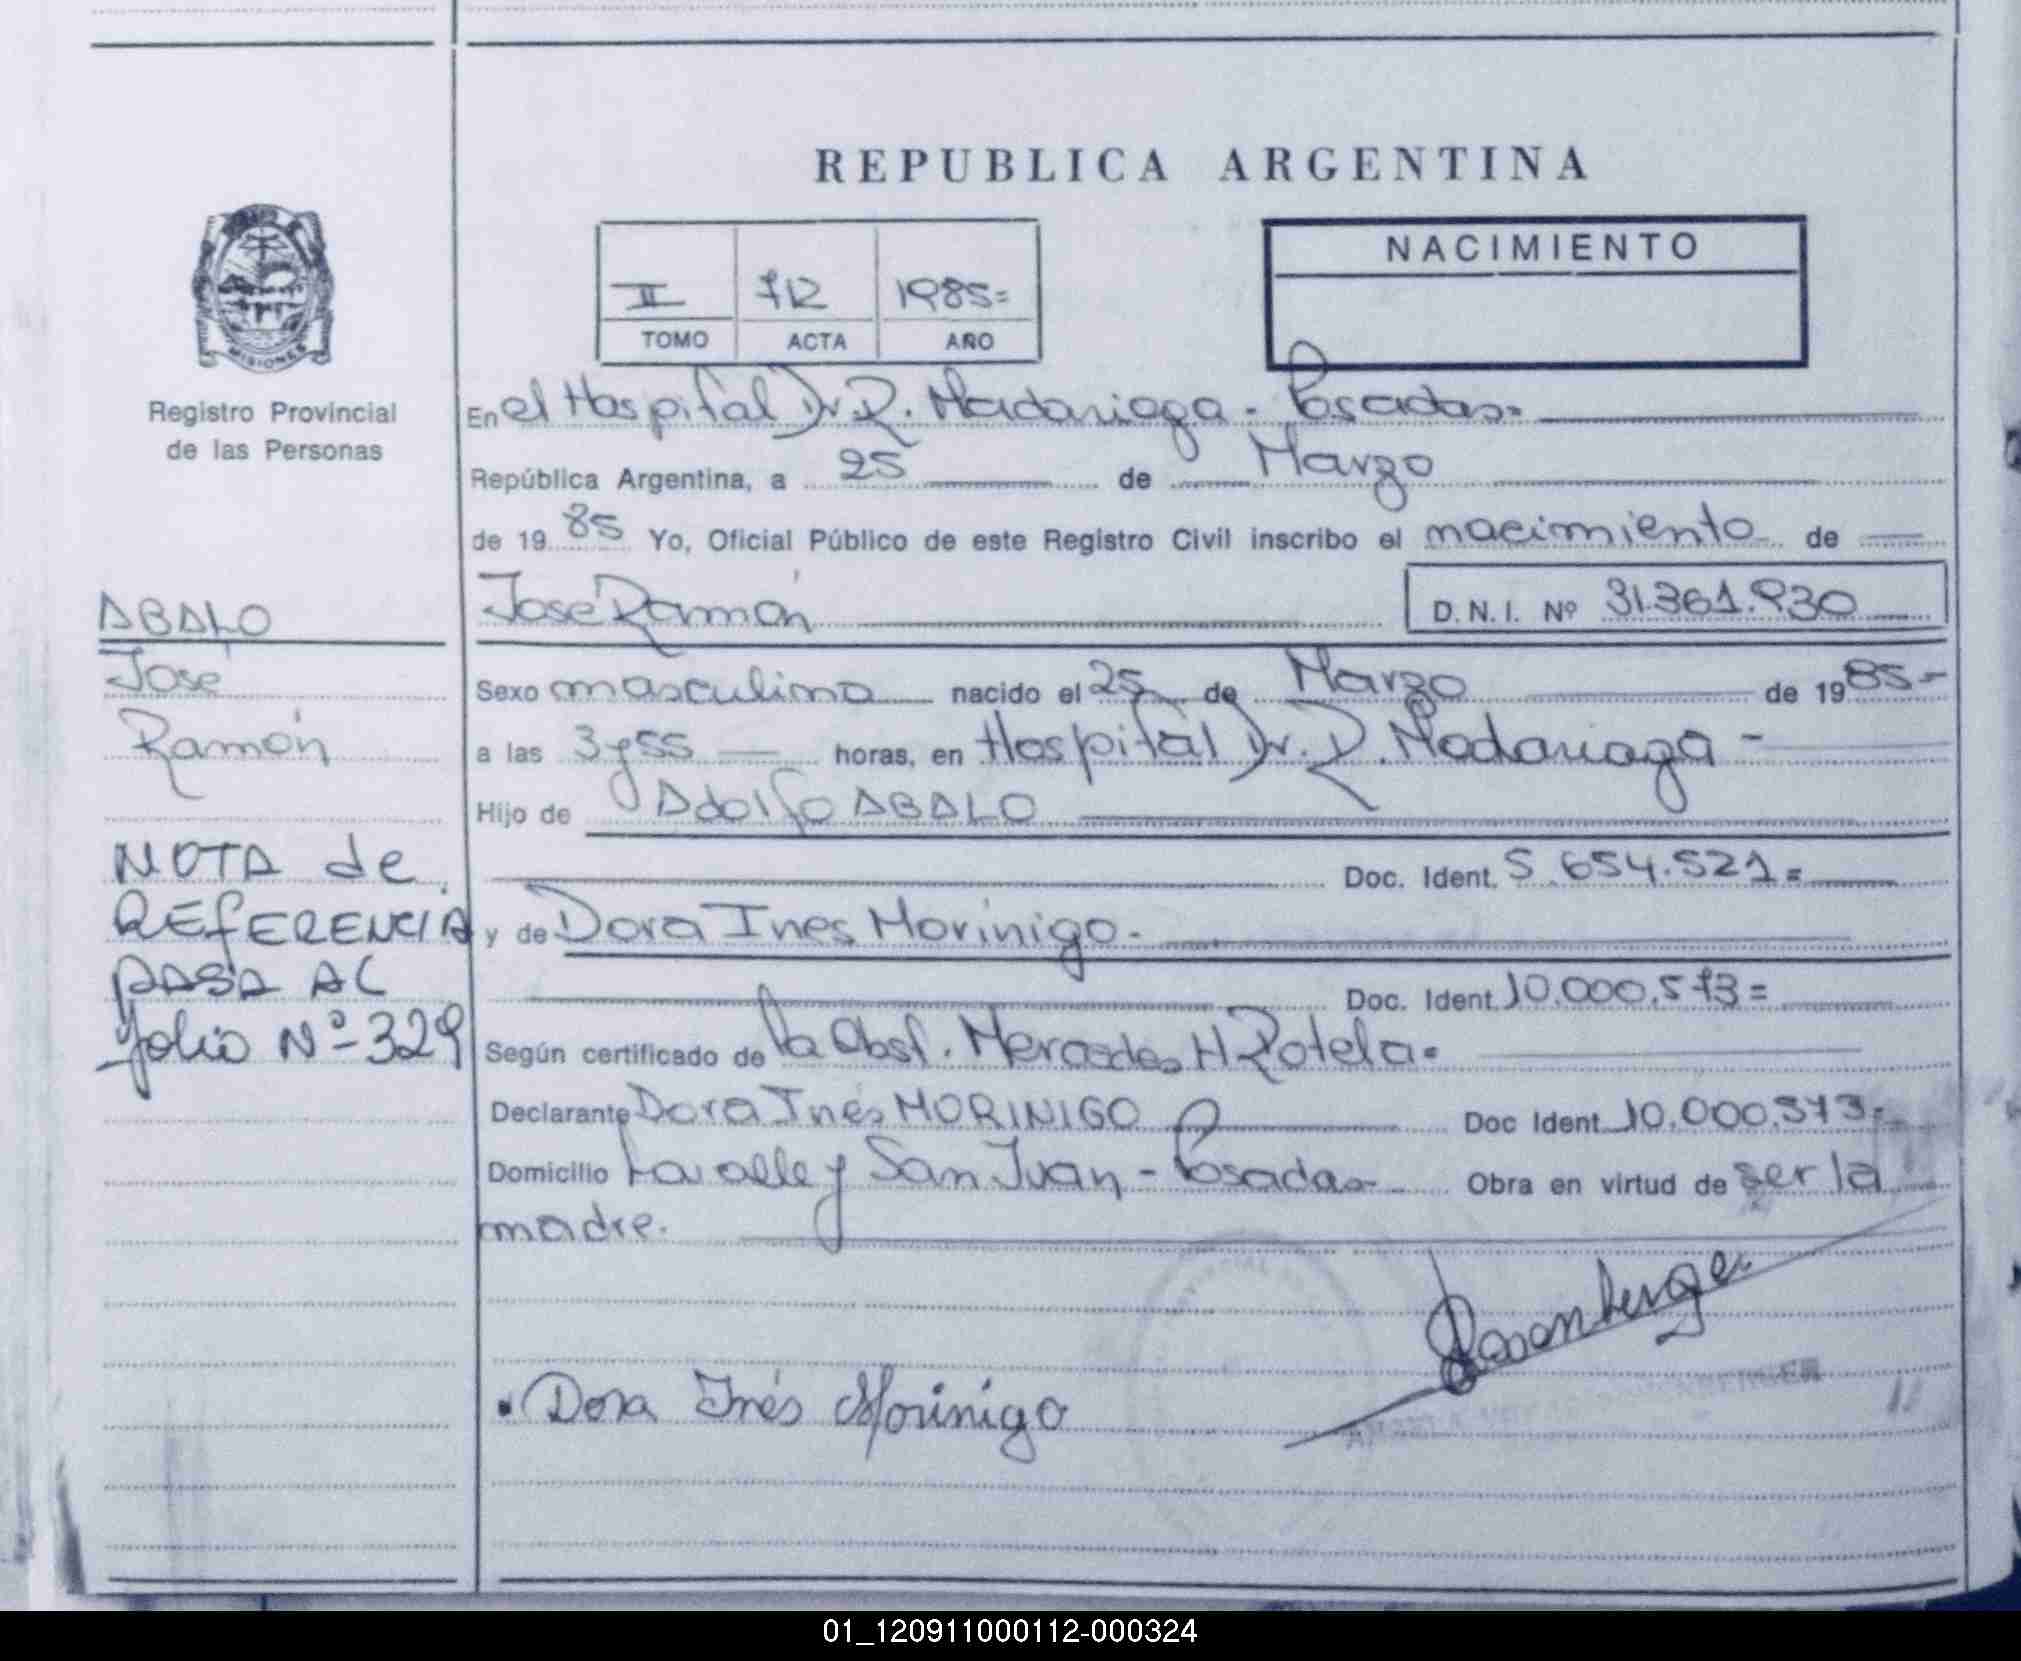 REPUBLICA ARGENTINA
NACIMIENTO
II 712 1985=
TOMO ACTA AÑO
MISIONES
Registro Provincial
de las Personas
En el Hospital Dr. R. Madariaga - Posadas=
República Argentina, a 25 de Marzo
de 1985 Yo, Oficial Público de este Registro Civil inscribo el nacimiento de
José Ramón D.N.I. Nº 31.361.930
ABALO
José
Ramón
NOTA de
REFERENCIA
PASA AL
folio Nº-329
Sexo masculino nacido el 25 de Marzo de 1985.-
a las 3 y 55 horas, en Hospital Dr. R. Madariaga -
Hijo de Adolfo ABALO
Doc. Ident. 5.654.521=
y de Dora Ines Morinigo.
Doc. Ident. 10.000.573=
Según certificado de la Obst. Mercedes H Rotela=
Declarante Dora Inés MORINIGO Doc Ident. 10.000.573=
Domicilio Lavalle y San Juan - Posadas Obra en virtud de ser la
madre.
Dora Inés Morinigo
01_120911000112-000324